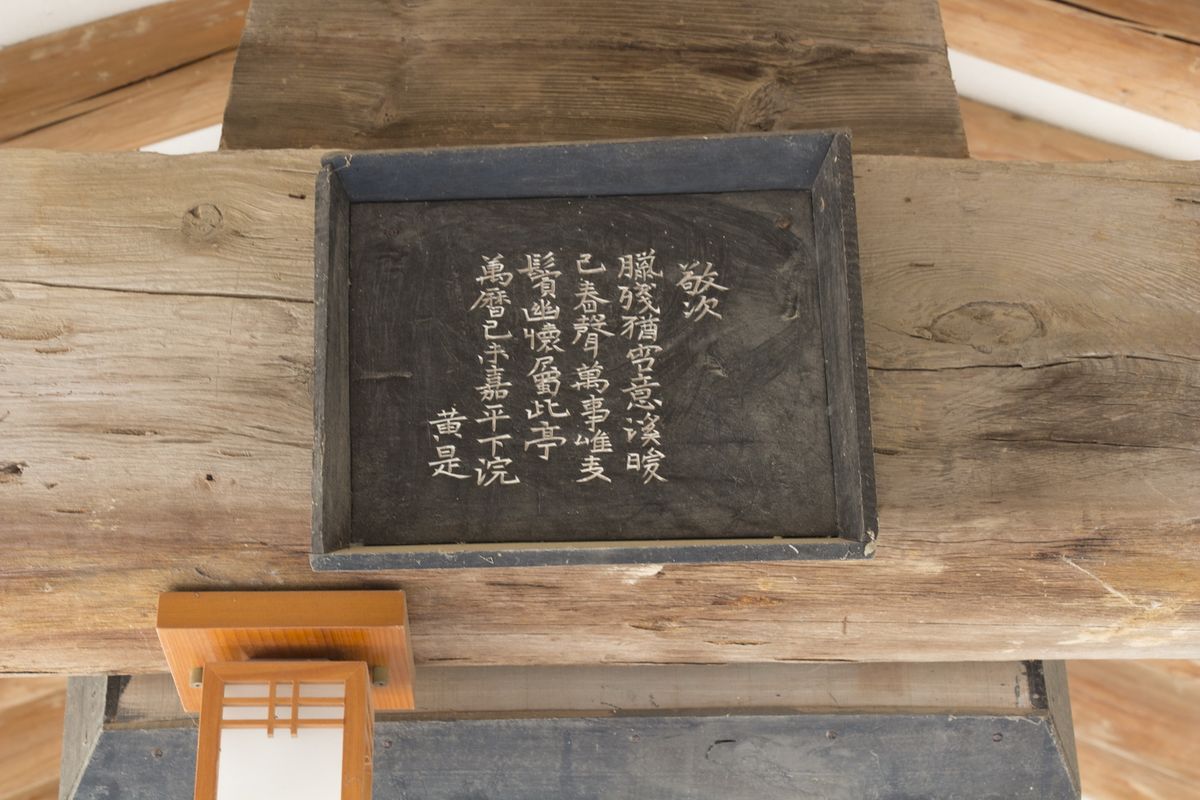 敬次
臘殘猶雪意溪暖
已春聲萬事唯麦
鬢幽懷屬此亭
萬曆己未嘉平下浣
黄是